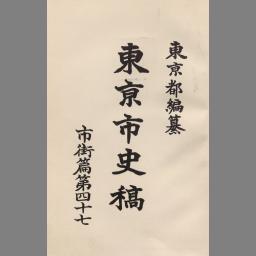 東京都編纂
東亰市史稿
市街篇第四十七